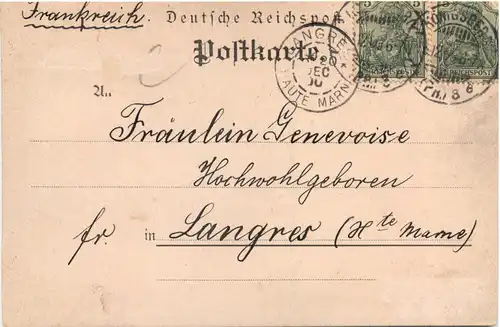 Frankreich.
Deutsche Reichspost.
Postkarte.
LANGRES
20
DEC
00
HAUTE MARNE
5
REICHSPOST
An
Fräulein Genevoise
Hochwohlgeboren
fr.
in Langres (Hte Marne)